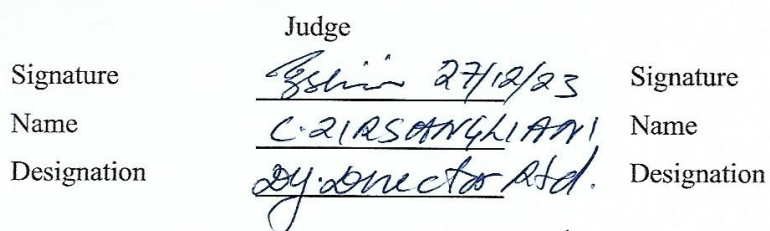 Judge
Signature 27/12/23 Signature
Name C. ZIRSANGLIANI Name
Designation Dy. Director Rtd. Designation